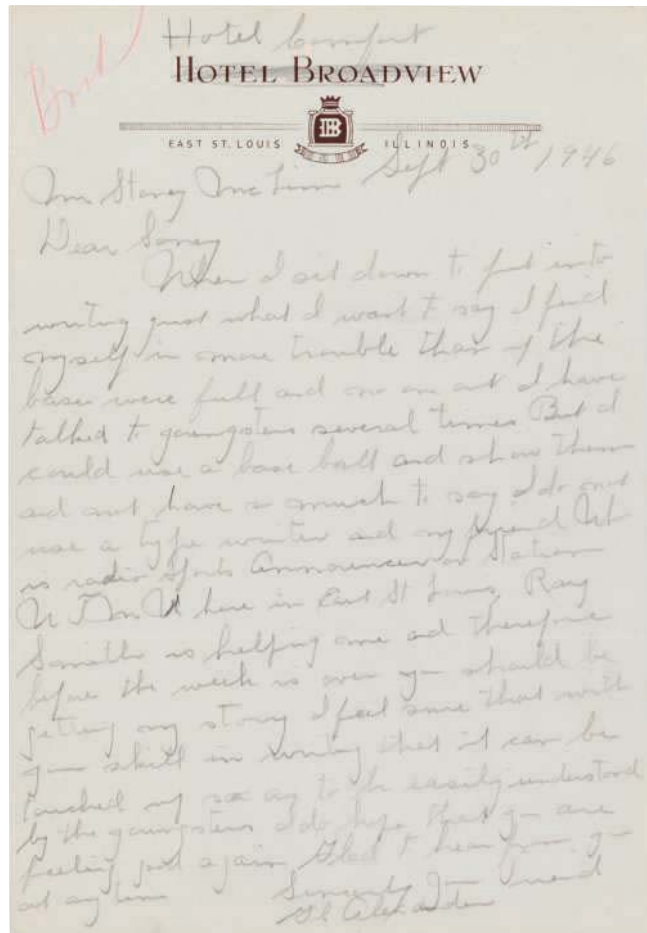 Hotel Comfort
HOTEL BROADVIEW
B
EAST ST. LOUIS ILLINOIS
Sept 30th, 1946
Mr Stoney McLinn
Dear Stoney
When I sit down to put into
writing just what I want to say I find
myself in more trouble than if the
bases were full and no one out I have
talked to youngsters several times But I
could use a base ball and show them
ad not have so much to say I do not
use a type writer ad my friend
is radio sports Announcer on Station
here in East St Louis, Ray
Smith is helping me ad therefore
before the week is over you should be
getting my story I feel sure that with
your skill in writing that it can be
touched up so as to be easily understood
by the youngsters I do hope that you are
feeling good again, Glad to hear from you
at any time
Sincerely Your Friend
Alexander